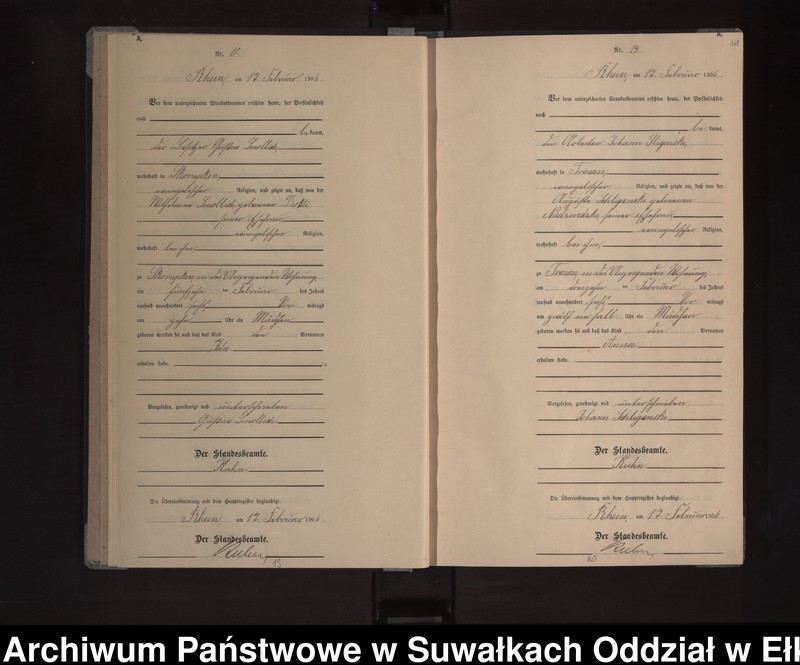 A.
Nr. 11
Rhein, am 17 Februar 1906.
Vor dem unterzeichneten Standesbeamten erschien heute, der Persönlichkeit
nach
be kannt,
der Besitzer Gustav
wohnhaft in Skorupken,
evangelischer Religion, und zeigte an, daß von der
Wilhelmine geborenen
seiner Ehefrau
evangelischer Religion,
wohnhaft bei ihm,
zu Skorupken, in des Wohnung
am fünfzehn ten Februar des Jahres
tausend neunhundert sechs Vor mittags
um zehn Uhr ein Mädchen
geboren worden sei und daß das Kind den Vornamen
Ida
erhalten habe.
Vorgelesen, genehmigt und unterschrieben
Gustav
Der Standesbeamte.
Kuhn
Die Übereinstimmung mit dem Hauptregister beglaubigt.
Rhein, am 17 Februar 1906
Der Standesbeamte.
Kuhn
13
A.
Nr. 19
Rhein, am 17 Februar 1906.
Vor dem unterzeichneten Standesbeamten erschien heute, der Persönlichkeit
nach
be kannt,
der Arbeiter Johann
wohnhaft in Trossen,
evangelischer Religion, und zeigte an, daß von der
Auguste geborenen
seiner Ehefrau
evangelischer Religion,
wohnhaft bei ihm,
zu Trossen in des Wohnung
am dreizehn ten Februar des Jahres
tausend neunhundert sechs Vor mittags
um zwölf einhalb Uhr ein Mädchen
geboren worden sei und daß das Kind den Vornamen
Anna
erhalten habe.
Vorgelesen, genehmigt und unterschrieben
Johann
Der Standesbeamte.
Kuhn
Die Übereinstimmung mit dem Hauptregister beglaubigt.
Rhein, am 17 Februar 1906
Der Standesbeamte.
Kuhn
Archiwum Państwowe w Suwałkach Oddział w Ełk